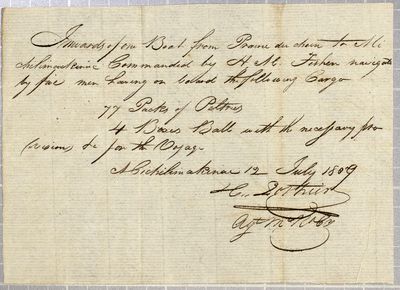 Inwards of one Boat from Prairie du chien to Mi
chilimackinac Commanded by H M. Fisher navigate
by five men having on board the following Cargo
77 Packs of Peltries
4 Boxes Balls with the necessary pro
visions &c for the Voyage
Michilimakinac 12 July 1809
Agt